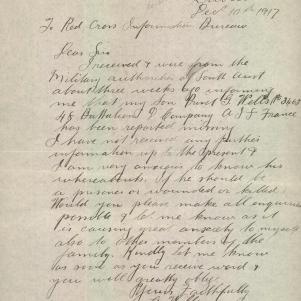 Dec 10th 1917
To Red Cross Information Bureau
Dear Sir
I received a wire from the
Military authorities of South Aust
about three weeks ago informing
me that my Son Privt Wills No 3463
48 Battalion D Company A I F France
has been reported missing
I have not received any further
information up to the present &
I am very anxious to know his
whereabouts if he should be
a prisoner or wounded or killed
Would you please make all enquiries
possible & let me know as it
is causing great anxiety to myself
also to other members of the
family. Kindly let me know
as soon as you receive word &
you will greatly oblige
Yours Faithfully